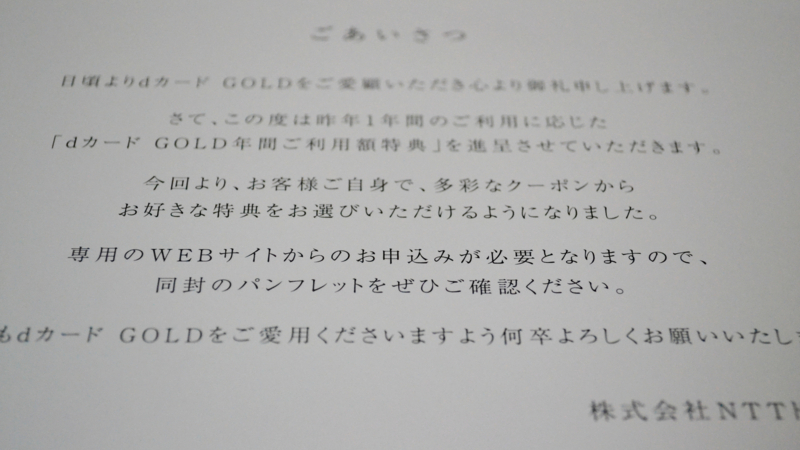 ごあいさつ
日頃よりdカード GOLDをご愛顧いただき心より御礼申し上げます。
さて、この度は昨年1年間のご利用に応じた
「dカード GOLD年間ご利用額特典」を進呈させていただきます。
今回より、お客様ご自身で、多彩なクーポンから
お好きな特典をお選びいただけるようになりました。
専用のWEBサイトからのお申込みが必要となりますので、
同封のパンフレットをぜひご確認ください。
もdカード GOLDをご愛用くださいますよう何卒よろしくお願いいたしま
株式会社NTT